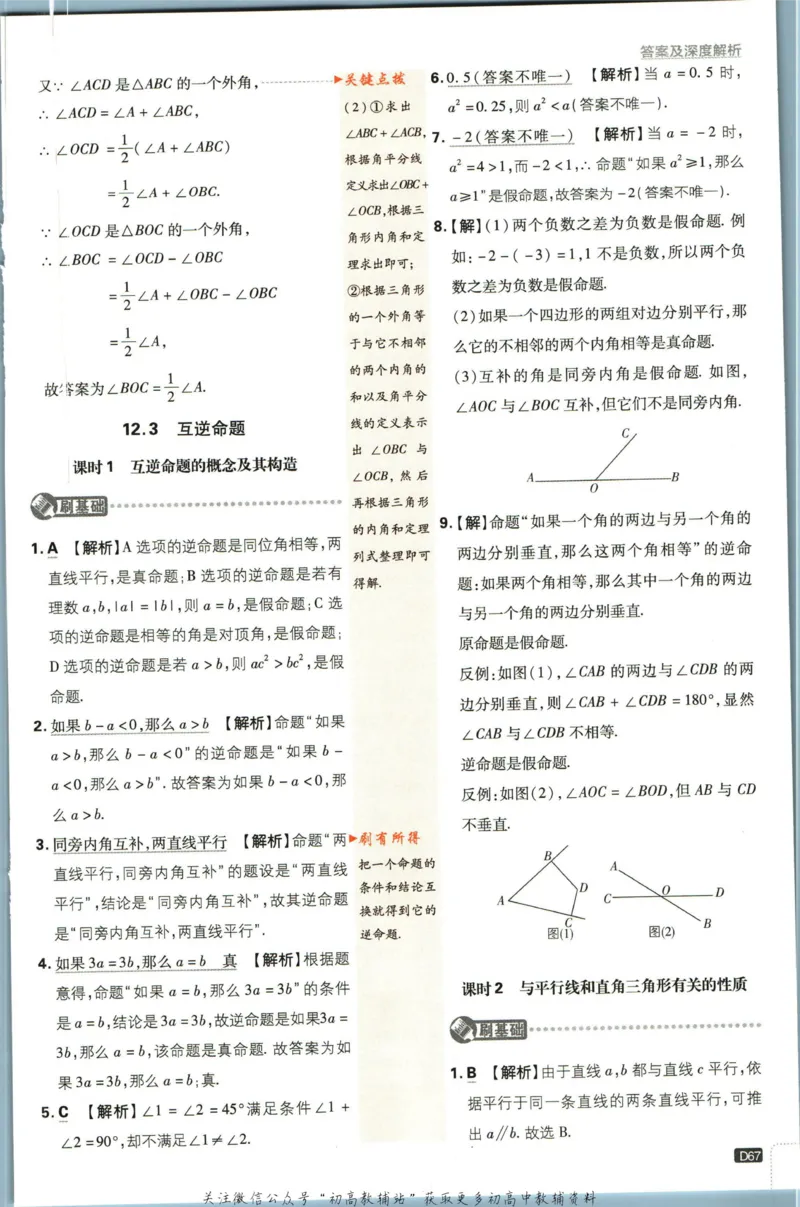 答案及深度解析
又∵ ∠ACD 是△ABC 的一个外角,
∴ ∠ACD = ∠A + ∠ABC,
∴ ∠OCD = 1/2(∠A + ∠ABC)
= 1/2∠A + ∠OBC.
∵ ∠OCD 是△BOC 的一个外角,
∴ ∠BOC = ∠OCD - ∠OBC
= 1/2∠A + ∠OBC - ∠OBC
= 1/2∠A,
故答案为∠BOC = 1/2∠A.
12.3 互逆命题
课时1 互逆命题的概念及其构造
刷基础
1. A 【解析】A 选项的逆命题是同位角相等,两
直线平行,是真命题;B 选项的逆命题是若有
理数 a,b,|a| = |b|,则 a = b,是假命题;C 选
项的逆命题是相等的角是对顶角,是假命题;
D 选项的逆命题是若 a > b,则 ac² > bc²,是假
命题.
2. 如果 b - a < 0,那么 a > b 【解析】命题“如果
a > b,那么 b - a < 0”的逆命题是“如果 b -
a < 0,那么 a > b”. 故答案为如果 b - a < 0,那
么 a > b.
3. 同旁内角互补,两直线平行 【解析】命题“两
直线平行,同旁内角互补”的题设是“两直线
平行”,结论是“同旁内角互补”,故其逆命题
是“同旁内角互补,两直线平行”.
4. 如果 3a = 3b,那么 a = b 真 【解析】根据题
意得,命题“如果 a = b,那么 3a = 3b”的条件
是 a = b,结论是 3a = 3b,故逆命题是如果3a =
3b,那么 a = b,该命题是真命题. 故答案为如
果 3a = 3b,那么 a = b;真.
5. C 【解析】∠1 = ∠2 = 45°满足条件∠1 +
∠2 = 90°,却不满足∠1 ≠ ∠2.
关键点拨
(2)①求出
∠ABC + ∠ACB,
根据角平分线
定义求出∠OBC +
∠OCB,根据三
角形内角和定
理求出即可;
②根据三角形
的一个外角等
于与它不相邻
的两个内角的
和以及角平分
线的定义表示
出 ∠OBC 与
∠OCB, 然后
再根据三角形
的内角和定理
列式整理即可
得解.
刷有所得
把一个命题的
条件和结论互
换就得到它的
逆命题.
6. 0.5(答案不唯一) 【解析】当 a = 0.5 时,
a² = 0.25,则 a² < a(答案不唯一).
7. -2(答案不唯一) 【解析】当 a = -2 时,
a² = 4 > 1,而 -2 < 1,∴ 命题“如果 a² ≥ 1,那么
a ≥ 1”是假命题,故答案为 -2(答案不唯一).
8. 【解】(1)两个负数之差为负数是假命题. 例
如: -2 - ( -3) = 1,1 不是负数,所以两个负
数之差为负数是假命题.
(2)如果一个四边形的两组对边分别平行,那
么它的不相邻的两个内角相等是真命题.
(3)互补的角是同旁内角是假命题. 如图,
∠AOC 与∠BOC 互补,但它们不是同旁内角.
C
A
B
O
9. 【解】命题“如果一个角的两边与另一个角的
两边分别垂直,那么这两个角相等”的逆命
题:如果两个角相等,那么其中一个角的两边
与另一个角的两边分别垂直.
原命题是假命题.
反例:如图(1),∠CAB 的两边与∠CDB 的两
边分别垂直,则∠CAB + ∠CDB = 180°,显然
∠CAB 与∠CDB 不相等.
逆命题是假命题.
反例:如图(2),∠AOC = ∠BOD,但 AB 与 CD
不垂直.
B
D
A
C
图(1)
A
O
D
C
B
图(2)
课时2 与平行线和直角三角形有关的性质
刷基础
1. B 【解析】由于直线 a,b 都与直线 c 平行,依
据平行于同一条直线的两条直线平行,可推
出 a∥b. 故选 B.
D67
关注微信公众号“初高教辅站”获取更多初高中教辅资料